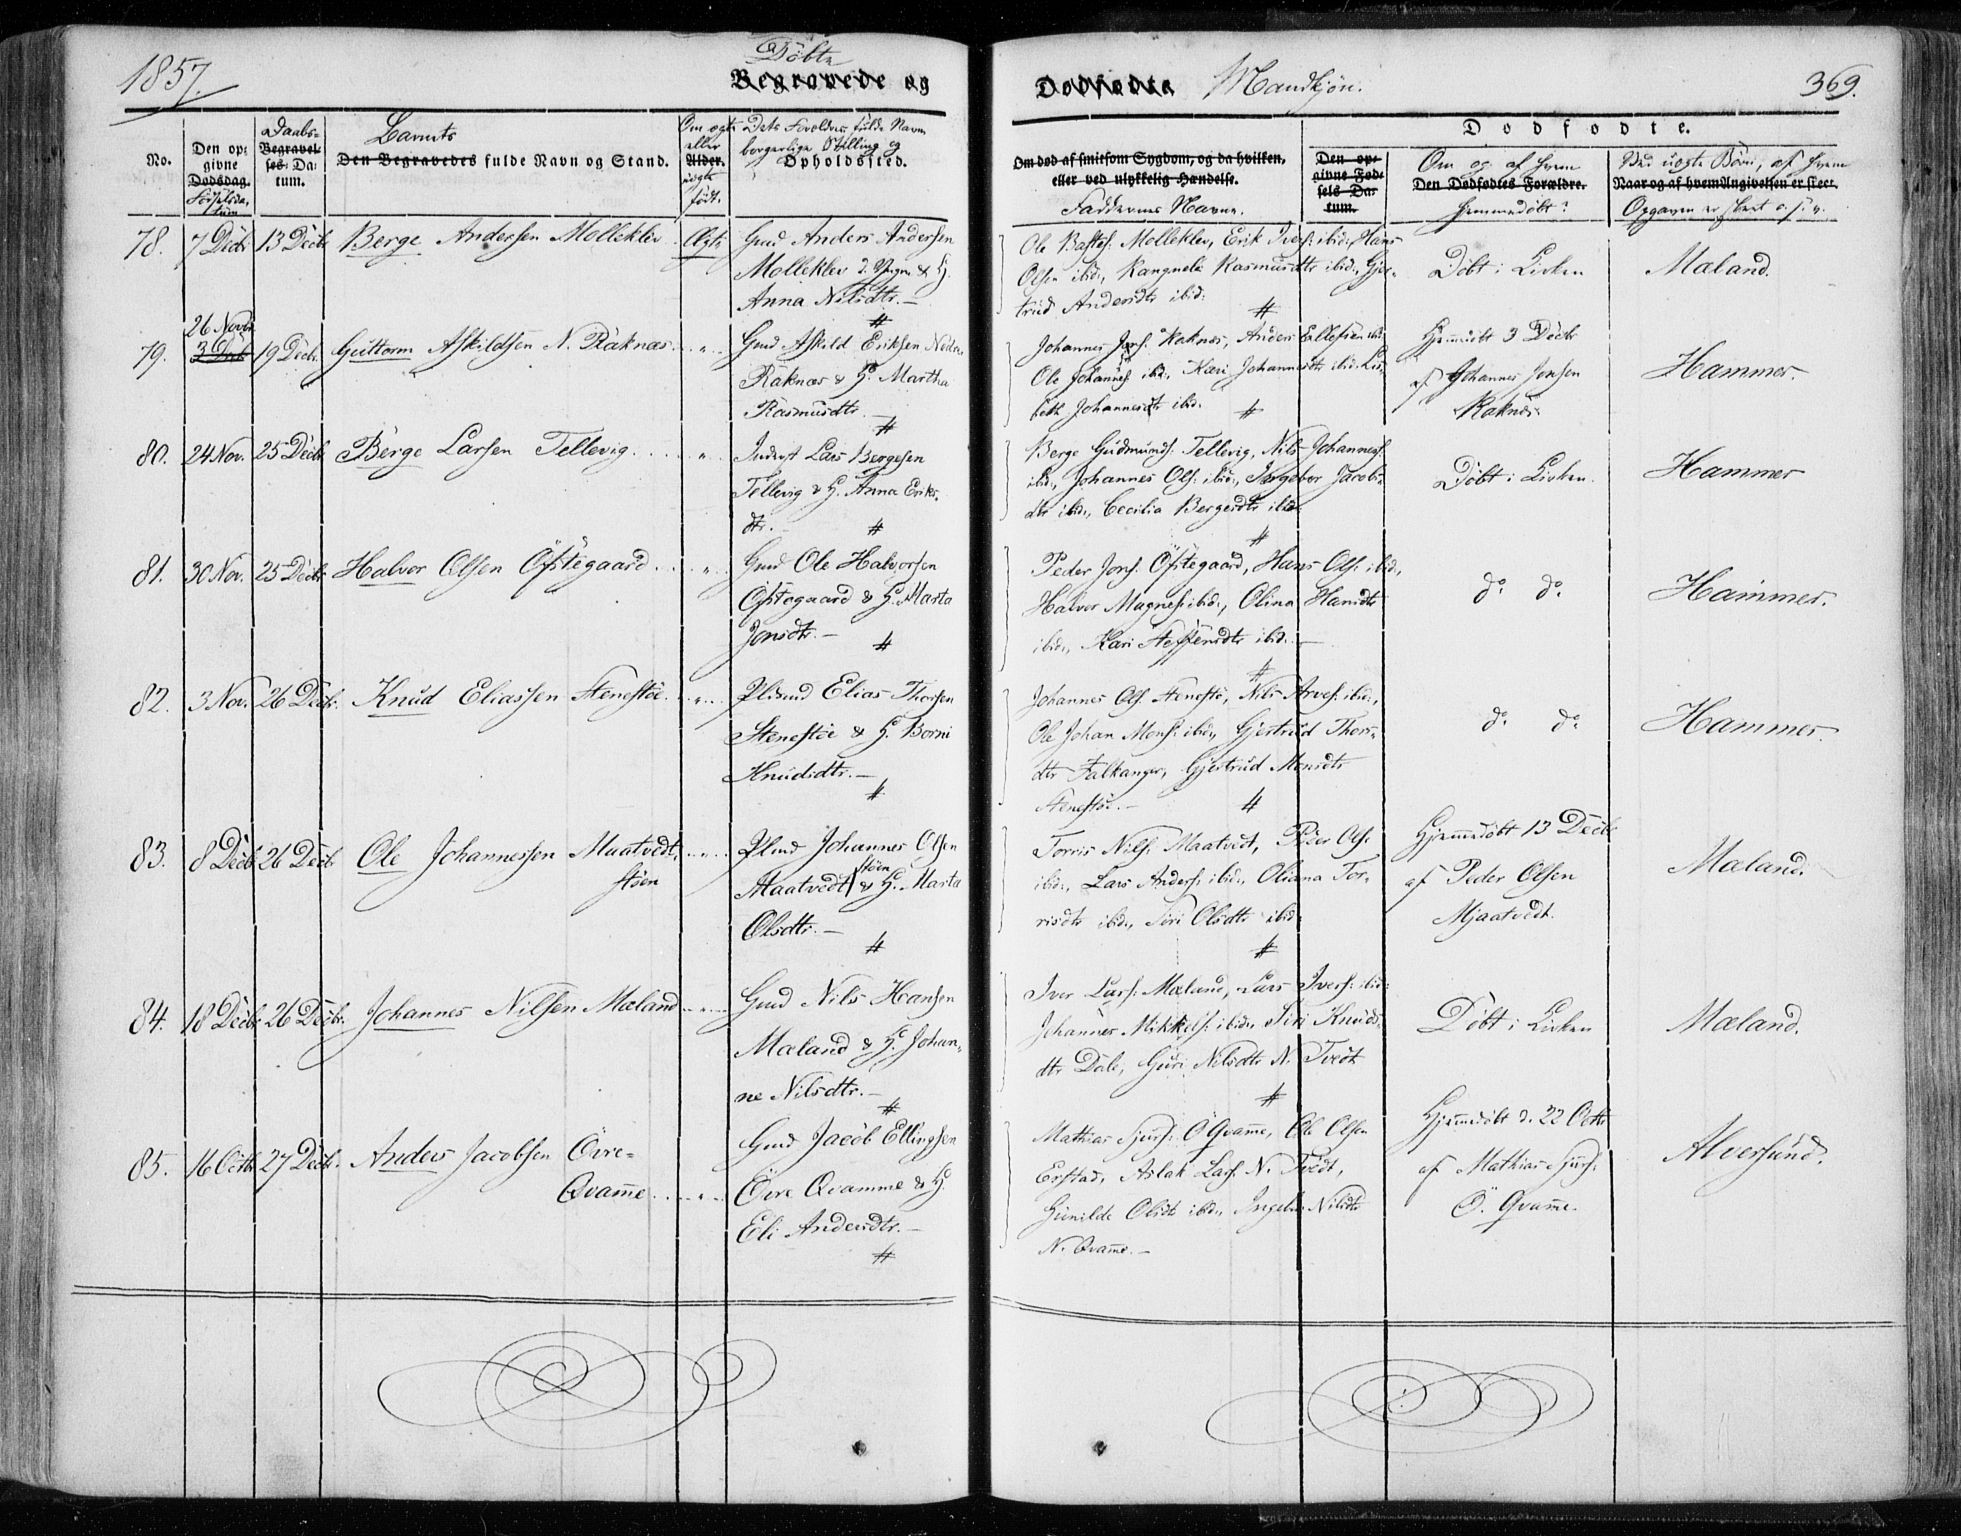 1857.
Döbte
Begravede og
Dødfødte Mandkjön.
369.
No.
Den op-
givne
Dödsdag.
Födselsda-
tum
Daabs-
Begravel-
ses- Da-
tum.
Barnets
Den Begravedes fulde Navn og Stand.
Om ægte
eller
Alder.
uægte
födt.
Dets Forældres fulde Navn
borgerlige Stilling og
Opholdssted.
Om død af smitsom Sygdom, og da hvilken,
eller ved ulykkelig Hændelse.
Faddernes Navne.
Dødfødte.
Den op-
givne Föd-
sels Da-
tum.
Om og af hvem
Den Dødfødtes Forældre.
hjemmedöbt?
Ved uægte Börn, af hvem
Naar og af hvem Angivelsen er skeet.
Opgaven er skeet o. s. v.
78. 7 Decbr 13 Decbr Berge Andersen Molleklev. Ægte Gmd Anders Andersen
Molleklev & H.
Anna Nilsdtr. —
Ole Bastes. Molleklev, Erik Ivers. ibid., Hans
Olsen ibid., Rangnele Rasmusdtr ibid., Gjer-
trud Andersdtr ibid.
Döbt i Kirken
Mæland.
26 Novbr
79. 3 Decbr 19 Decbr. Guttorm Askildsen N. Räknæs. " Gmd Askild Eriksen Nedre
Räknæs & H. Martha
Rasmusdtr. —
Johannes Jons. Raknæs, Anders Ellefsen ibid.
Ole Johannes. ibid., Kari Johannesdtr ibid. Lis-
beth Johannesdtr ibid.
Hjemmedöbt 3 Decbr
af Johannes Jonsen
Raknæs.
Hammer.
80. 24 Nov. 25 Decbr Berge Larsen Tellevig. " Inderst Lars Bergesen
Tellevig & H. Anna Eriks-
dtr.
Berge Gudmunds. Tellevig, Nils Johannes.
ibid., Johannes Ols. ibid., Ingebor Jacobs-
dtr ibid., Cecilia Bergesdtr ibid.
Döbt i Kirken.
Hammer
81. 30 Nov. 25 Decbr Halvor Olsen Öfstegaard. " Gmd Ole Halvorsen
Öfstegaard & H. Marta
Jonsdtr. —
Peder Jons. Öfstegaard, Hans Ols. ibid.,
Halvor Magnes. ibid., Olina Hansdtr
ibid., Kari Steffensdtr ibid. —
do. do.
Hammer.
82. 3 Nov. 26 Decbr. Knud Eliassen Stenestöe. " Plsmd Elias Thorsen
Stenestöe & H. Borni
Knudsdtr. —
Johannes Ols. Stenestö, Nils Arves. ibid.,
Ole Johan Mons. ibid., Gjertrud Thors-
dtr Falkanger, Gjertrud Monsdtr
Stenestö. —
do. do.
Hammer.
83. 8 Decbr 26 Decbr Ole Johannessen Maatvedt- " Plsmd Johannes Olsen
stöen
stöen
Maatvedt & H. Marta
Olsdtr. —
Torris Nils. Maatvedt, Peder Ols.
ibid., Lars Anders. ibid., Oliana Tor-
risdtr ibid., Siri Olsdtr ibid.
Hjemmedöbt 13 Decbr
af Peder Olsen
Mjaatvedt.
Mæland.
84. 18 Decbr 26 Decbr. Johannes Nilsen Mæland " Gmd Nils Hansen
Mæland & H. Johan-
ne Nilsdtr. —
Iver Lars. Mæland, Lars Ivers. ibid.
Johannes Mikkels. ibid., Siri Knuds-
dtr Dale, Guri Nilsdtr N. Tvedt
Döbt i Kirken
Mæland.
85. 16 Octbr 27 Decbr. Anders Jacobsen Övre-
Qvamme " Gmd Jacob Ellingsen
Övre Qvamme & H.
Eli Andersdtr. —
Mathias Sjurs. Ö Qvamme, Ole Olsen
Erstad, Aslak Lars. N. Tvedt,
Gunilde Olsdtr ibid., Ingeb. Nilsdtr
N. Qvamme. —
Hjemmedöbt d. 22 Octbr
af Mathias Sjurs.
Ö. Qvamme.
Alversund.